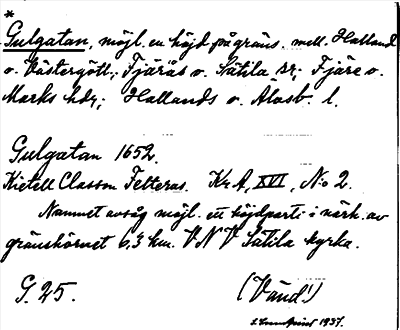 *
Gulgatan, möjl. en höjd på gräns. mell. Halland
o. Västergötl.; Fjärås o. Sätila sr; Fjäre o.
Marks hdr; Hallands o. Älvsb. l.
Gulgatan 1652.
Kietell Classon Felterus. KrA, XVI, No 2.
Namnet avsåg möjl. ett höjdparti i närh. av
gränshörnet 6,3 km. VNV Sätila kyrka.
G. 25. (Vänd!)
1937.